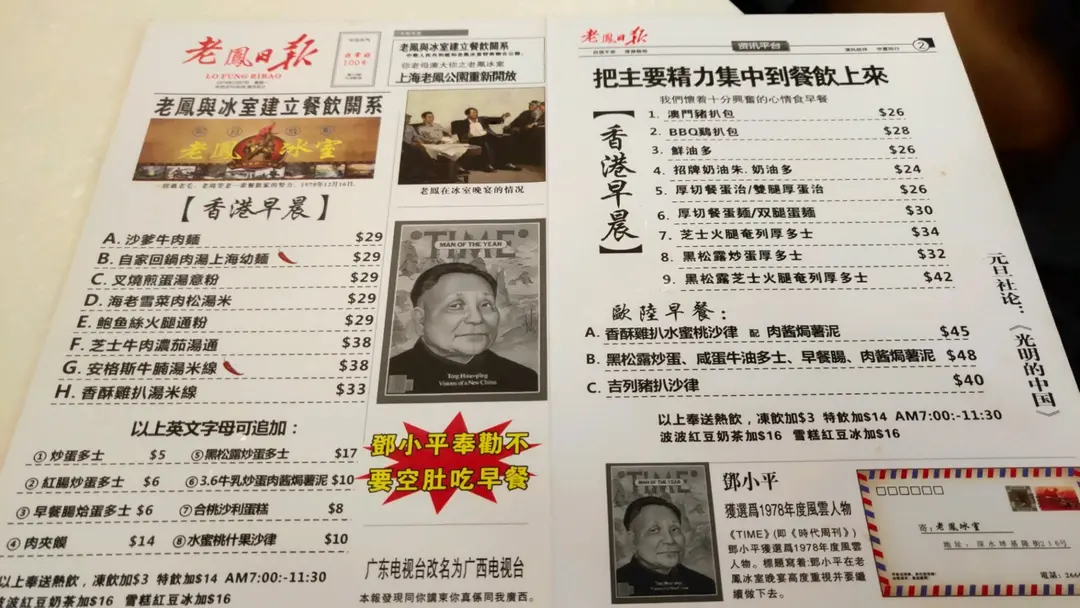 老鳳日报
LO FUNG RIBAO
100年
老鳳與冰室建立餐飲關系
老鳳 冰室
【香港早晨】
A. 沙爹牛肉麵 $29
B. 自家回鍋肉湯上海幼麵 $29
C. 叉燒煎蛋湯意粉 $29
D. 海老雪菜肉松湯米 $29
E. 鮑鱼絲火腿通粉 $29
F. 芝士牛肉濃茄湯通 $38
G. 安格斯牛腩湯米線 $38
H. 香酥雞扒湯米線 $33
以上英文字母可追加：
① 炒蛋多士 $5 ⑤黑松露炒蛋多士 $17
② 紅腸炒蛋多士 $6 ⑥3.6牛乳炒蛋肉酱焗薯泥 $10
③ 早餐腸烚蛋多士 $6 ⑦合桃沙利蛋糕 $8
④ 肉夾饃 $14 ⑧水蜜桃什果沙律 $10
以上奉送熱飲，凍飲加$3 特飲加$14 AM7:00:-11:30
波波紅豆奶茶加$16 雪糕紅豆冰加$16
老鳳與冰室建立餐飲關系
你老母廣大你之老鳳冰室
上海老鳳公園重新開放
老鳳在冰室晚宴的情况
TIME
MAN OF THE YEAR
Teng Hsiao-p'ing
Visions of a New China
鄧小平奉勸不
要空肚吃早餐
广东电视台改名为广西电视台
本報發現同你講東你真係同我廣西。
老鳳日报
资讯平台
②
把主要精力集中到餐飲上來
我們懷着十分興奮的心情食早餐
【香港早晨】
1. 澳門豬扒包 $26
2. BBQ鷄扒包 $28
3. 鮮油多 $26
4. 招牌奶油朱. 奶油多 $24
5. 厚切餐蛋治/雙腿厚蛋治 $26
6. 厚切餐蛋麵/双腿蛋麵 $30
7. 芝士火腿奄列厚多士 $34
8. 黑松露炒蛋厚多士 $32
9. 黑松露芝士火腿奄列厚多士 $42
歐陸早餐：
A. 香酥雞扒水蜜桃沙律 配 肉酱焗薯泥 $45
B. 黑松露炒蛋、咸蛋牛油多士、早餐腸、肉酱焗薯泥 $48
C. 吉列豬扒沙律 $40
以上奉送熱飲，凍飲加$3 特飲加$14 AM7:00:-11:30
波波紅豆奶茶加$16 雪糕紅豆冰加$16
元旦社论：《光明的中国》
TIME
MAN OF THE YEAR
鄧小平
獲選爲1978年度風雲人物
《TIME》(即《時代周刊》)
鄧小平獲選爲1978年度風雲
人物。標題寫着:鄧小平在老
鳳冰室晚宴高度重視并要繼
續做下去。
寄: 老鳳冰室
地址：深水埗基隆街216号
電話：